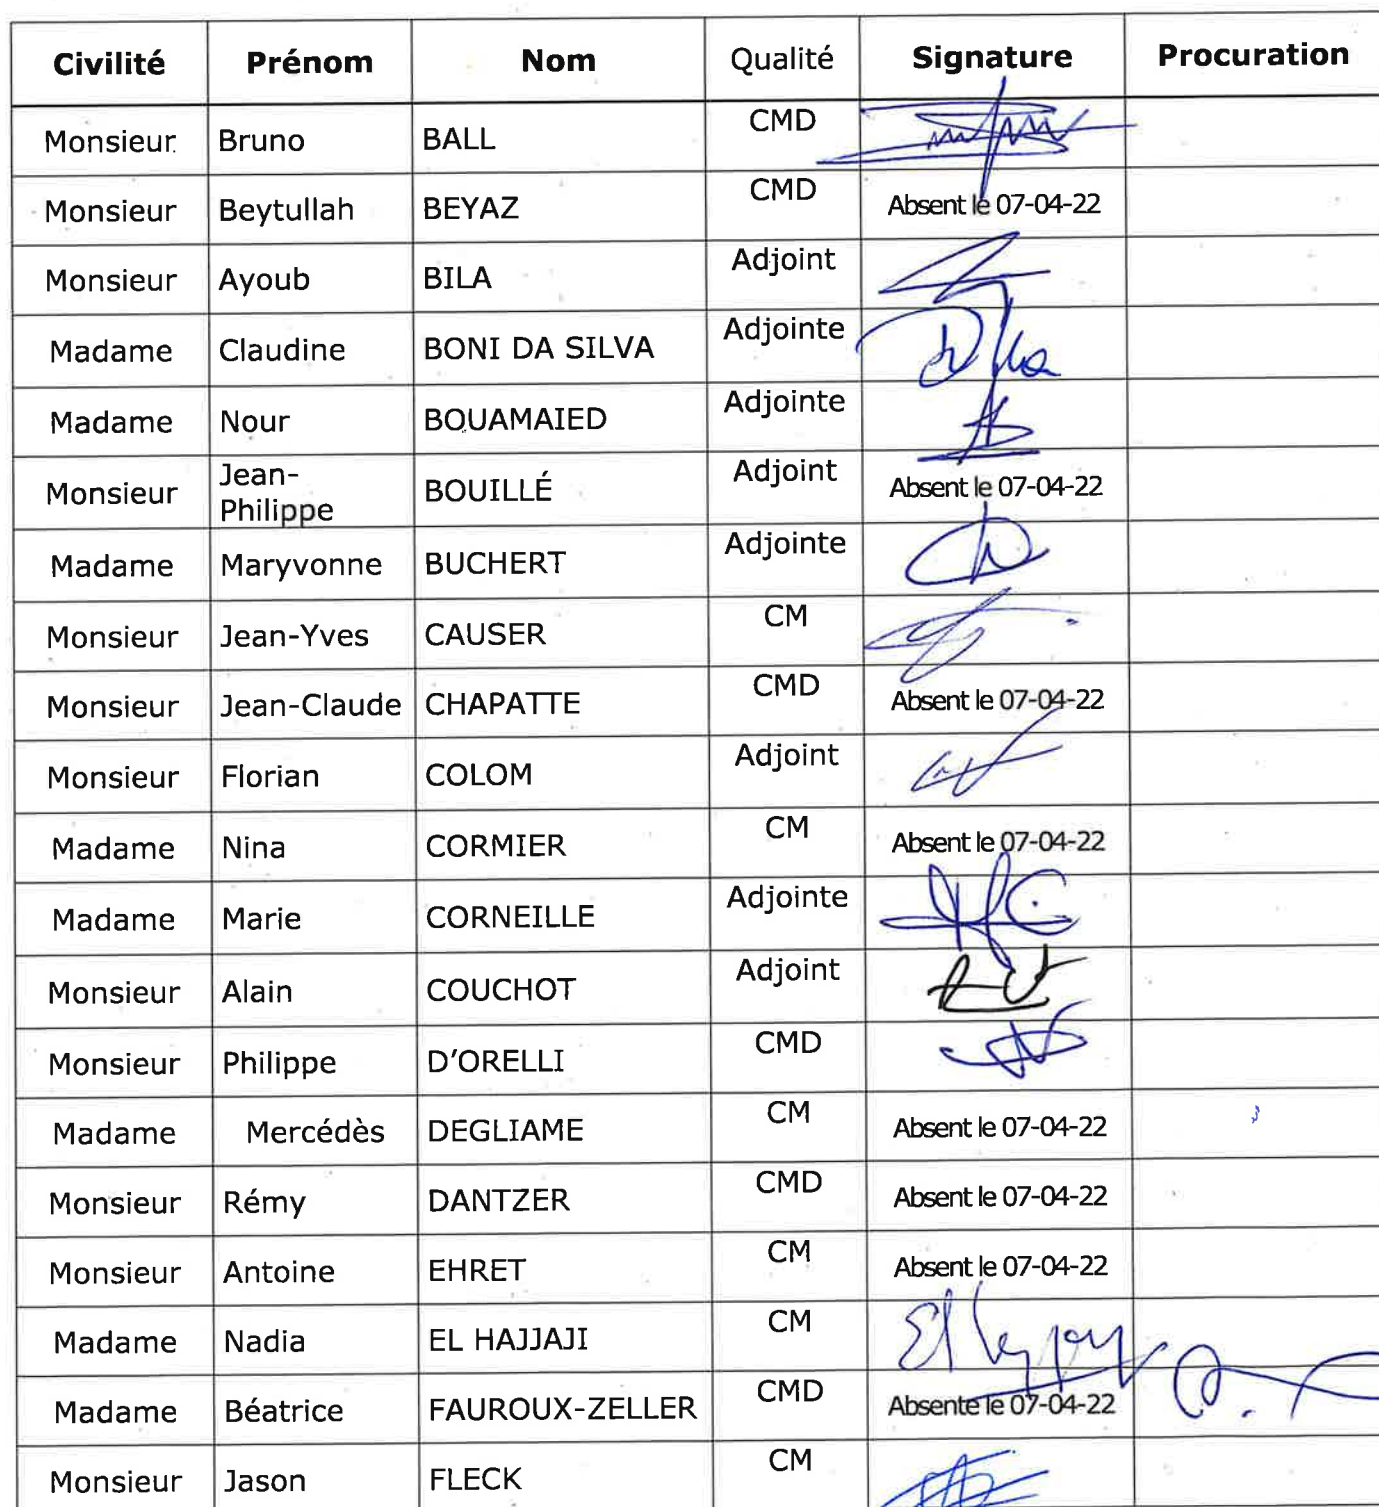 Civilité Prénom Nom Qualité Signature Procuration
Monsieur Bruno BALL CMD
Monsieur Beytullah BEYAZ CMD Absent le 07-04-22
Monsieur Ayoub BILA Adjoint
Madame Claudine BONI DA SILVA Adjointe
Madame Nour BOUAMAIED Adjointe
Monsieur Jean-
Philippe BOUILLÉ Adjoint Absent le 07-04-22
Madame Maryvonne BUCHERT Adjointe
Monsieur Jean-Yves CAUSER CM
Monsieur Jean-Claude CHAPATTE CMD Absent le 07-04-22
Monsieur Florian COLOM Adjoint
Madame Nina CORMIER CM Absent le 07-04-22
Madame Marie CORNEILLE Adjointe
Monsieur Alain COUCHOT Adjoint
Monsieur Philippe D'ORELLI CMD
Madame Mercédès DEGLIAME CM Absent le 07-04-22
Monsieur Rémy DANTZER CMD Absent le 07-04-22
Monsieur Antoine EHRET CM Absent le 07-04-22
Madame Nadia EL HAJJAJI CM
Madame Béatrice FAUROUX-ZELLER CMD Absente le 07-04-22
Monsieur Jason FLECK CM